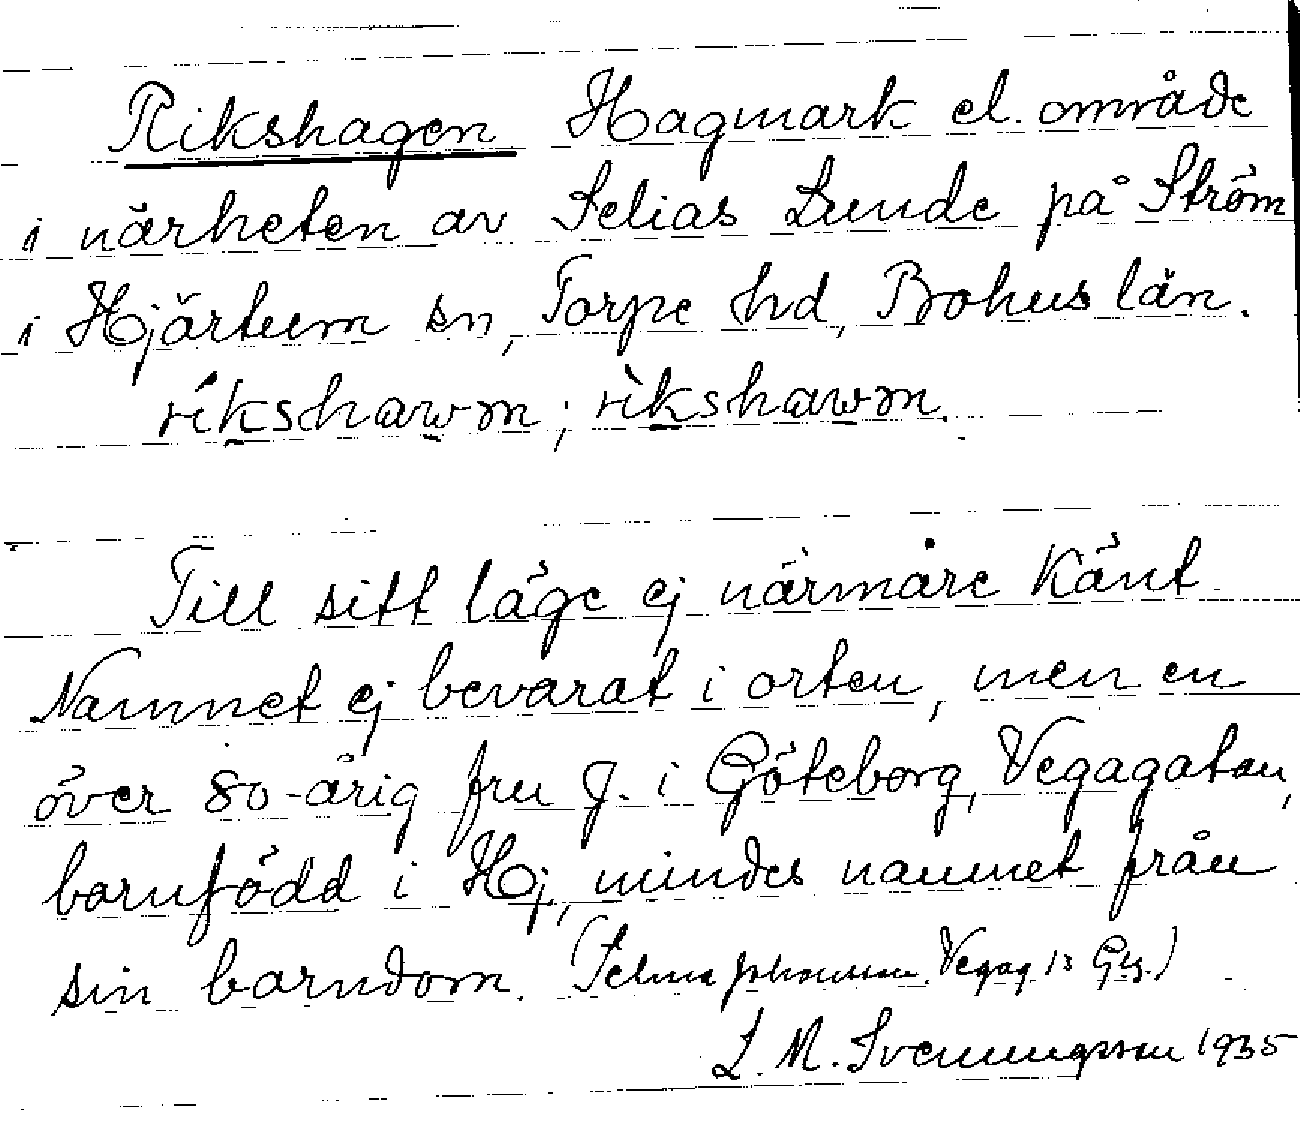 Rikshagen Hagmark el. område
i närheten av Selias Lunde på Ström
i Hjärtum sn, Torpe hd, Bohus län.
ríkshawm; rìkshawm.
Till sitt läge ej närmare känt.
Namnet ej bevarat i orten, men en
över 80-årig fru J. i Göteborg, Vegagatan,
barnfödd i Hj, mindes namnet från
sin barndom. (Selma Johansson Vegag 13 Gbg.)
L. M. Svenungsson 1935